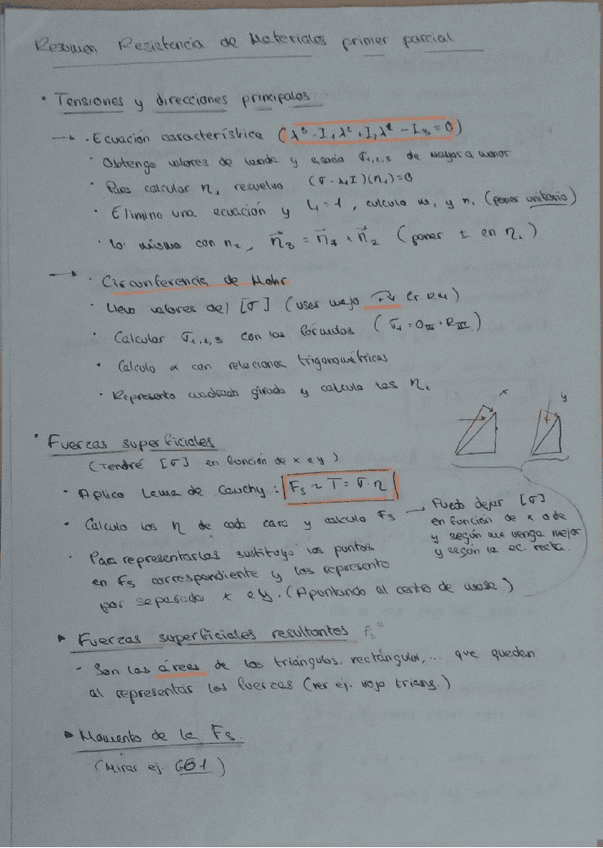 Resumen Resistencia de Materiales primer parcial
· Tensiones y direcciones principales
→ · Ecuación característica (λ³ - I₁λ² + I₂λ - I₃ = 0)
· Obtengo valores de landa y σ₁,₂,₃ de mayor a menor
· Para calcular n₁ resuelvo (σ - λ₁I)(n₁) = 0
· Elimino una ecuación y L₁ = 1, calculo m₁ y n₁ (poner unitario)
· Lo mismo con n₂, n⃗₃ = n⃗₁ × n⃗₂ (poner ± en n₁)
→ · Circunferencia de Mohr
· Llevo valores del [σ] (usar
· Calcular σ₁,₂,₃ con las fórmulas (σ₁ = O_III + R_III)
· Calculo α con relaciones trigonométricas
· Represento cuadrado girado y calculo las n₁
x y
· Fuerzas superficiales
(Tendré [σ] en función de x e y)
· Aplico Lema de Cauchy: Fs ~ T = σ · n
· Calculo los n de cada cara y calculo Fs → Puedo dejar [σ]
en función de x o de
y según me venga mejor
y según la ec. recta.
· Para representarlas sustituyo los puntos
en Fs correspondiente y las represento
por separado x e y. (Apuntando al centro de masa)
▸ Fuerzas superficiales resultantes Fs
- Son las áreas de los triángulos, rectángulos, ... que quedan
al representar las fuerzas (ver ej. triang.)
▸ Momento de la Fs.
(Mirar ej. G61)